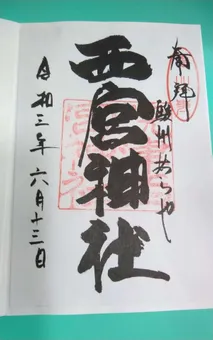 奉拝
駿州あらや
西宮神社
令和三年六月十三日